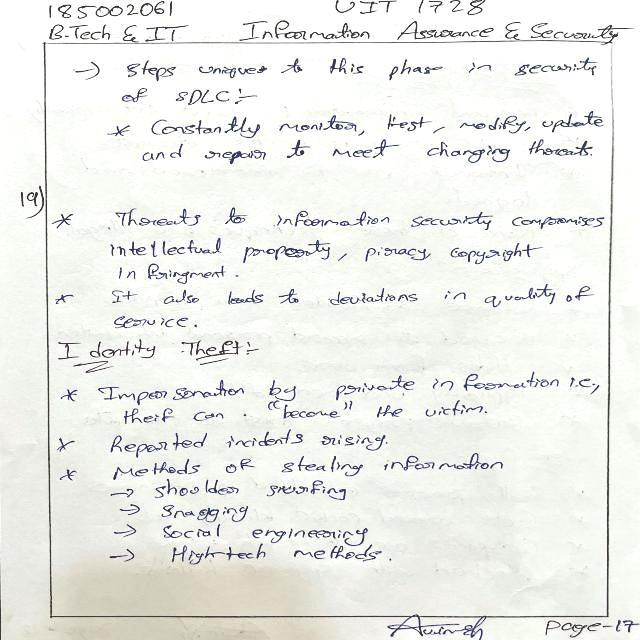 185002061 UIT 1728
B.Tech & IT Information Assurance & Security
-> Steps unique to this phase in security
of SDLC:-
* Constantly monitor, test, modify, update
and repair to meet changing threats.
19)
* Threats to information security compromises
intellectual property, piracy, copyright
infringment.
* It also leads to deviations in quality of
service.
Identity Theft:-
* Impersonation by private information i.e.,
theif can "become" the victim.
* Reported incidents rising.
* Methods of stealing information
-> shoulder surfing
-> Snagging
-> Social engineering
-> High-tech methods.
Page-17